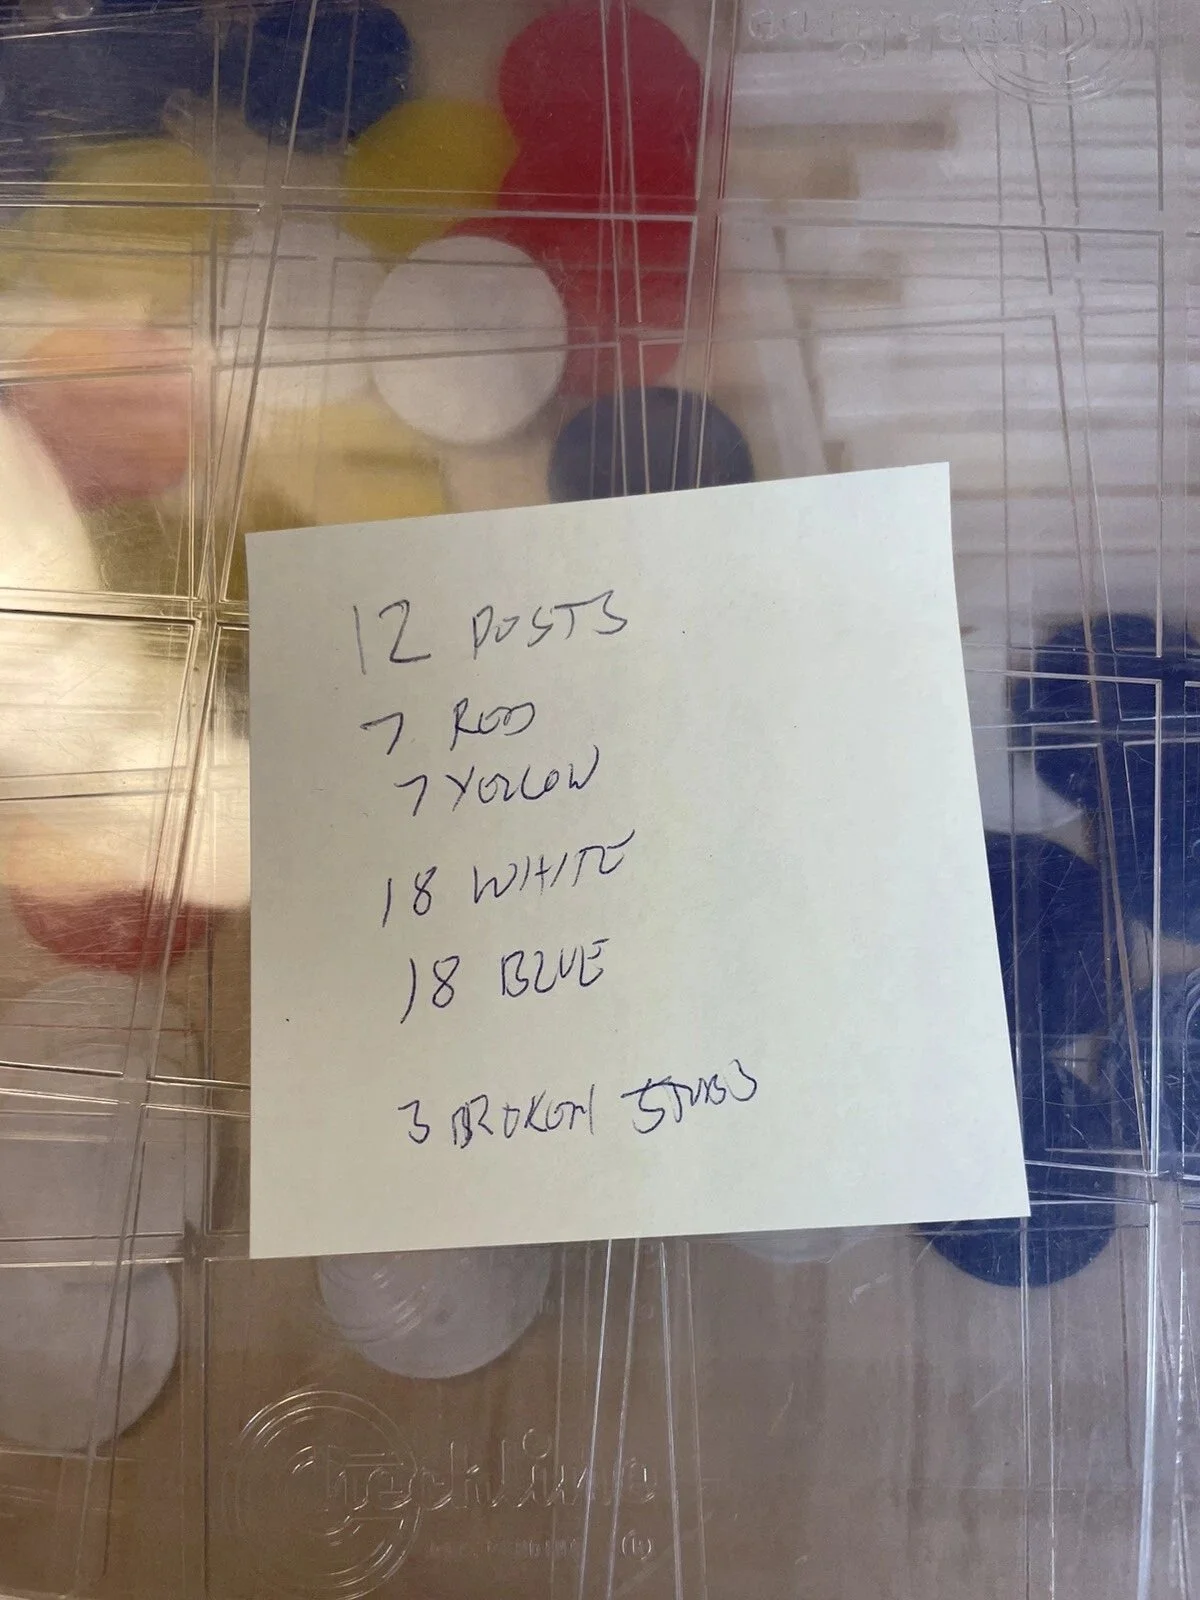 12 POSTS
7 RED
7 YELLOW
18 WHITE
18 BLUE
3 BROKEN STUBS
Checkline
(R)